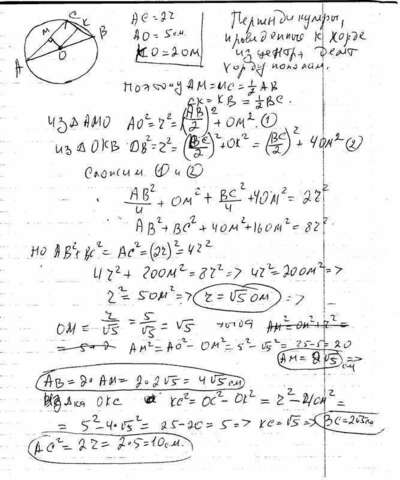 AC=2r
AO=5см.
KO=2OM
Перпендикуляры,
проведенные к хорде
из центра делят
хорду пополам.
A
M
C
K
B
O
Поэтому AM=MC=½AB
CK=KB=½BC.
Из ΔAMO AO²=r²=(AB/2)²+OM². ①
Из ΔOKB OB²=r²=(BC/2)²+OK²=(BC/2)²+4OM² ②
Сложим ① и ②
AB²/4+OM²+BC²/4+4OM²=2r²
AB²+BC²+4OM²+16OM²=8r²
Но AB²+BC²=AC²=(2r)²=4r²
4r²+20OM²=8r²=>4r²=20OM²=>
r²=5OM²=>r=√5OM=>
OM=r/√5=5/√5=√5
AM²=AO²-OM²=5²-√5²=25-5=20
AM=2√5 см =>
AB=2·AM=2·2√5=4√5см
Из ΔOKC KC²=OC²-OK²=r²-4OM²=
=5²-4·√5²=25-20=5=>KC=√5=>BC=2√5см
AC²=2r=2·5=10см.